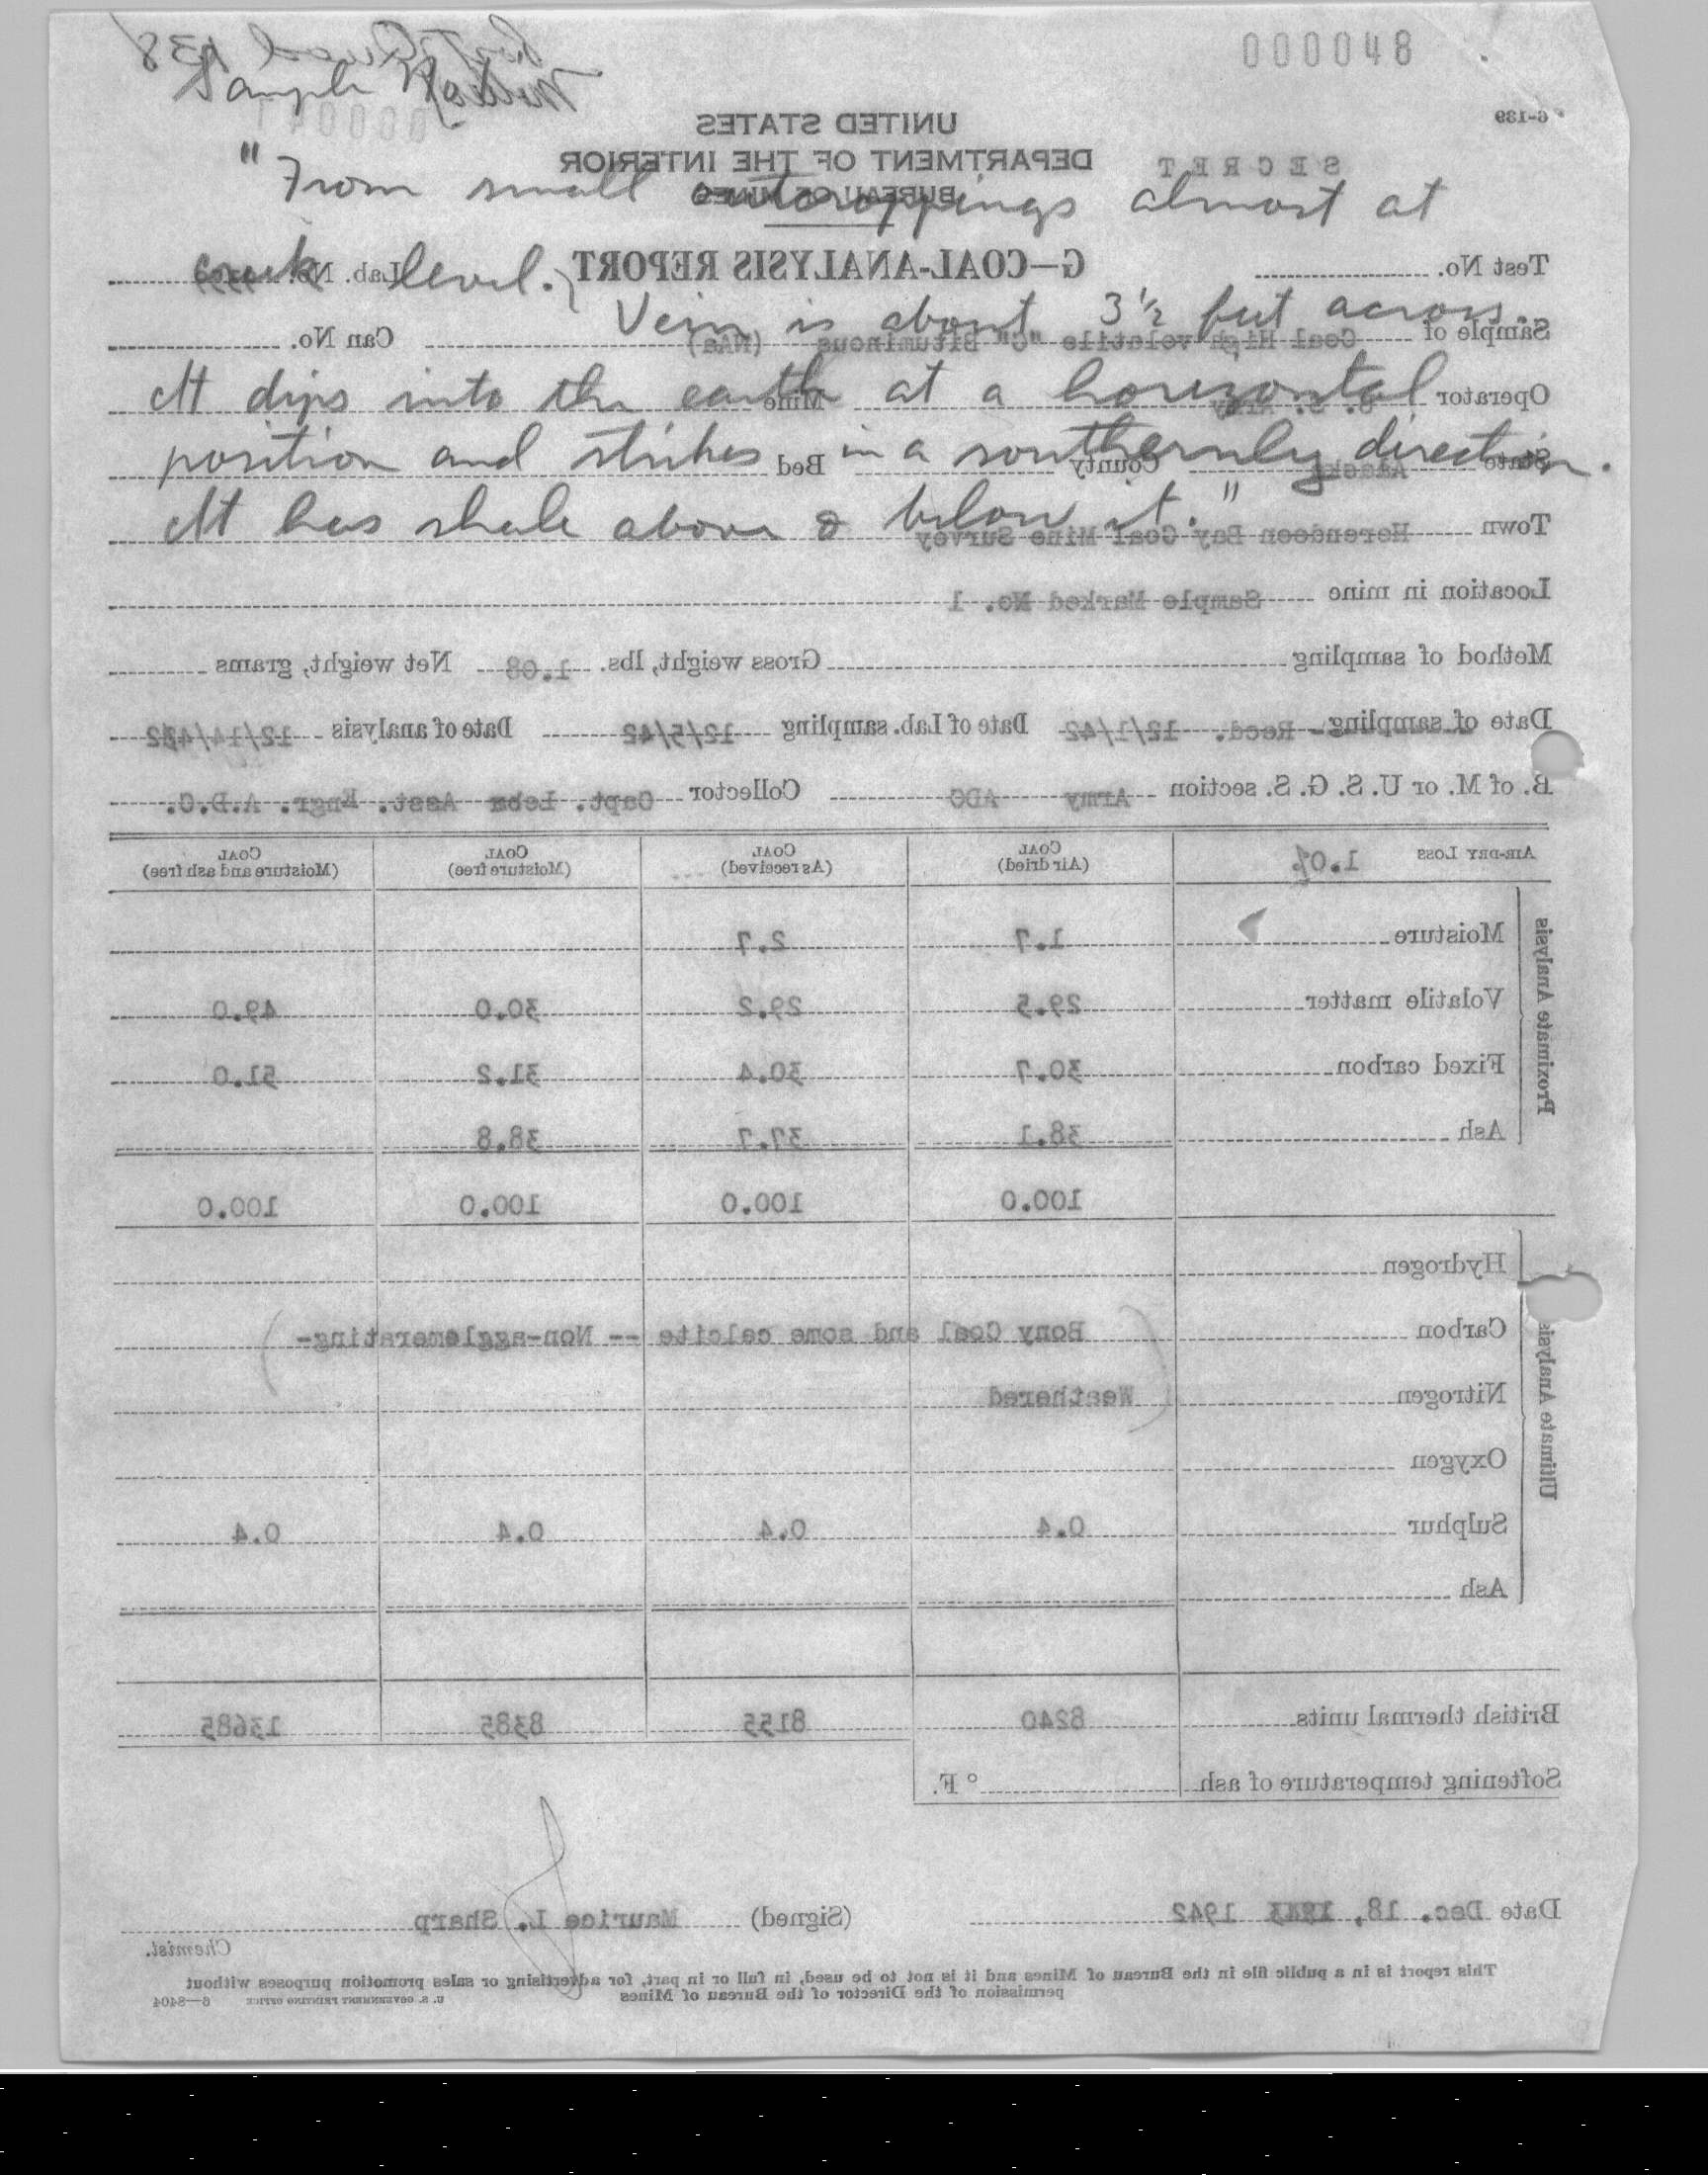 000048
Sample No.
"From small outcroppings almost at
creek level.
Vein is about 3½ feet across.
It dips into the earth at a horizontal
position and strikes in a southernly direction.
It has shale above & below it."
6-139
UNITED STATES
DEPARTMENT OF THE INTERIOR
BUREAU OF MINES
SECRET
Test No. G—COAL-ANALYSIS REPORT Lab. No.
Sample of Coal High volatile "C" Bituminous Can No.
Operator U. S. Army Mine
State Alaska County Bed
Town Herendeen Bay Coal Mine Survey
Location in mine Sample Marked No. 1
Method of sampling Gross weight, lbs. 1.08 Net weight, grams
Date of sampling Recd. 12/1/42 Date of Lab. sampling 12/5/42 Date of analysis 12/14/42
B. of M. or U. S. G. S. section Army ADC Collector Capt. Asst. Engr. A.D.C.
AIR-DRY LOSS 1.0% COAL (Air dried) COAL (As received) COAL (Moisture free) COAL (Moisture and ash free)
Proximate Analysis
Moisture 1.7 2.7
Volatile matter 29.5 29.2 30.0 49.0
Fixed carbon 30.7 30.4 31.2 51.0
Ash 38.1 37.7 38.8
100.0 100.0 100.0 100.0
Ultimate Analysis
Hydrogen
Carbon Bony Coal and some calcite -- Non-agglomerating-
Nitrogen Weathered
Oxygen
Sulphur 0.4 0.4 0.4 0.4
Ash
British thermal units 8240 8155 8385 13685
Softening temperature of ash ° F.
Date Dec. 18, 1942 (Signed) Maurice L. Sharp
Chemist.
This report is in a public file in the Bureau of Mines and it is not to be used, in full or in part, for advertising or sales promotion purposes without
permission of the Director of the Bureau of Mines
U. S. GOVERNMENT PRINTING OFFICE 6—8404